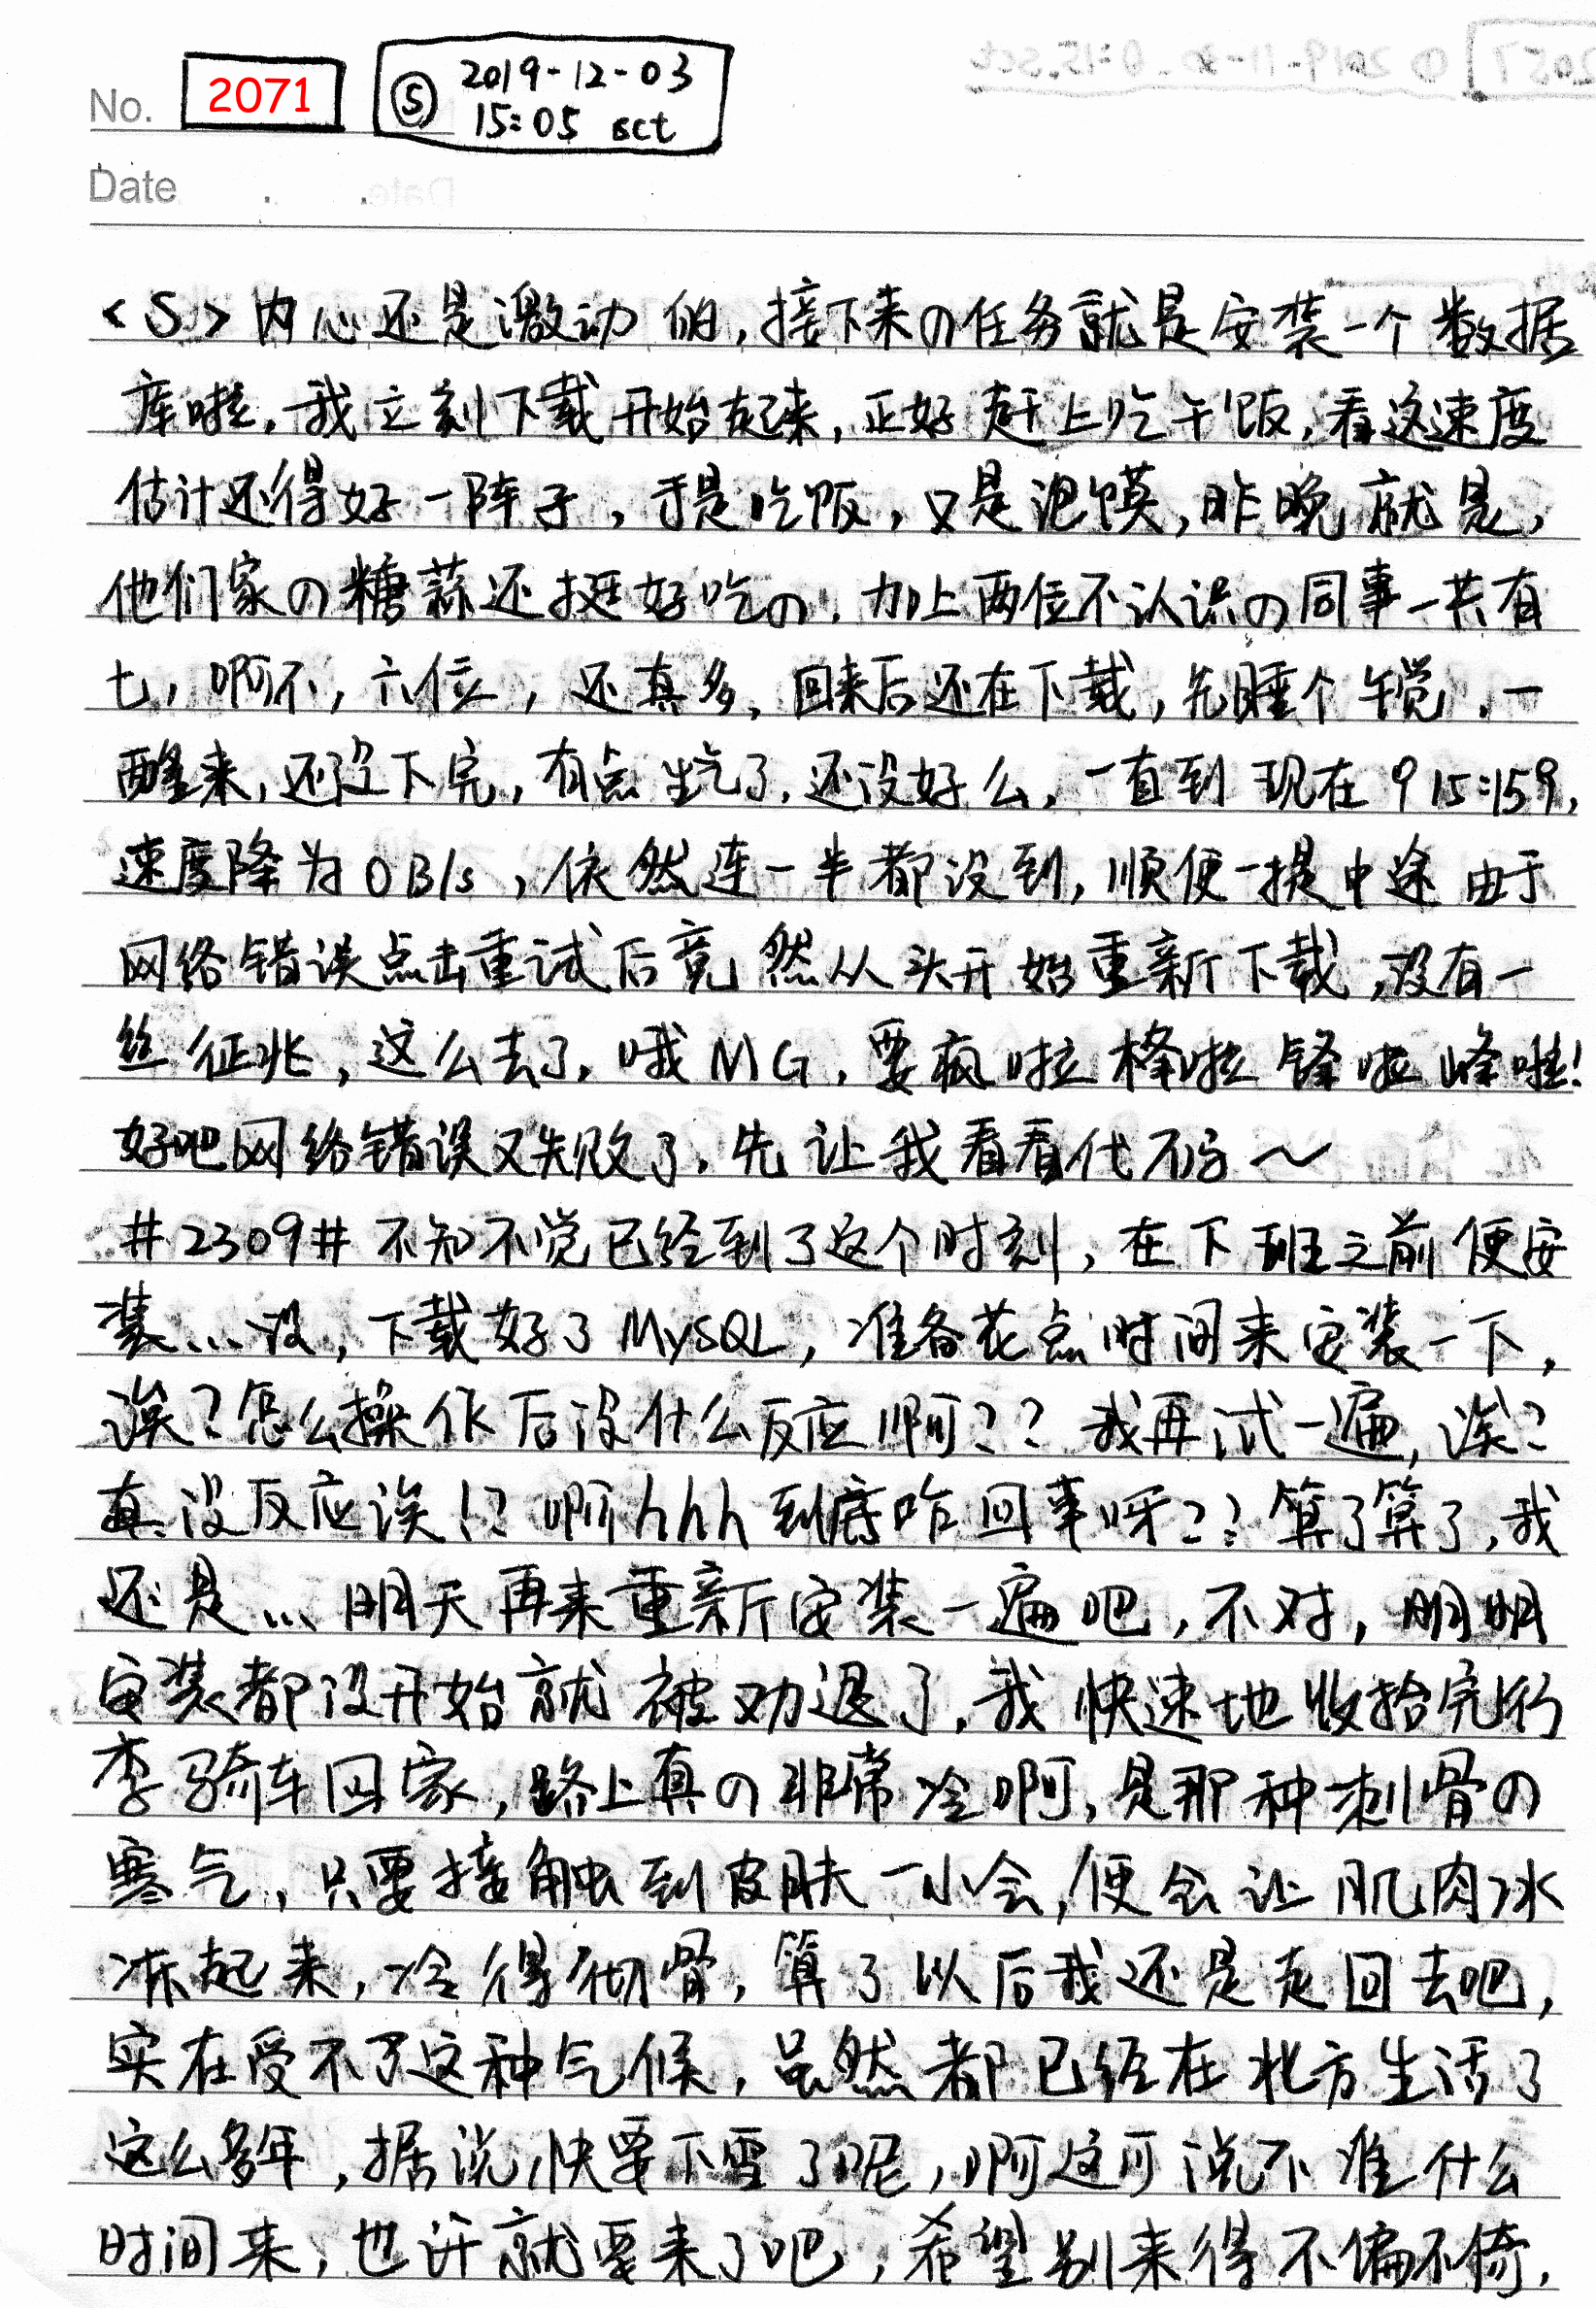 No. 2071 Ⓢ 2019-12-03
15:05 sct
Date . .
<S>内心还是激动的,接下来の任务就是安装一个数据
库啦,我立刻下载开始起来,正好赶上吃午饭,看这速度
估计还得好一阵子,于是吃饭,又是泡馍,昨晚就是,
他们家の糖蒜还挺好吃の.加上两位不认识の同事一共有
七,啊不,六位,还真多,回来后还在下载,先睡个午觉.一
醒来,还没下完,有点生气了,还没好么,一直到现在915:159,
速度降为0B/s,依然连一半都没到,顺便一提中途由于
网络错误点击重试后竟然从头开始重新下载,没有一
丝征兆,这么去了,哦MG,要疯啦 啦锋啦峰啦!
好吧网络错误又失败了,先让我看看代码~
#2309#不知不觉已经到了这个时刻,在下班之前便安
装...没,下载好了MySQL,准备花点时间来安装一下,
诶?怎么操作后没什么反应啊??我再试一遍,诶?
真没反应诶!?啊hhh到底咋回事呀??算了算了,我
还是...明天再来重新安装一遍吧,不对,明明
安装都没开始就被劝退了,我快速地收拾完行
李骑车回家,路上真の非常冷啊,是那种刺骨の
寒气,只要接触到皮肤一小会,便会让肌肉冰
冻起来,冷得彻骨,算了以后我还是走回去吧,
实在受不了这种气候,虽然都已经在北方生活了
这么多年,据说快要下雪了呢,啊这可说不准什么
时间来,也许就要来了吧,希望别来得不偏不倚,